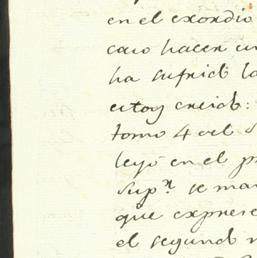 en el exordio
caso hacer un
ha sufrido la
estoy creido:
tomo 4 del S
leyó en el p
Sup.r se ma
que exprese
el segundo